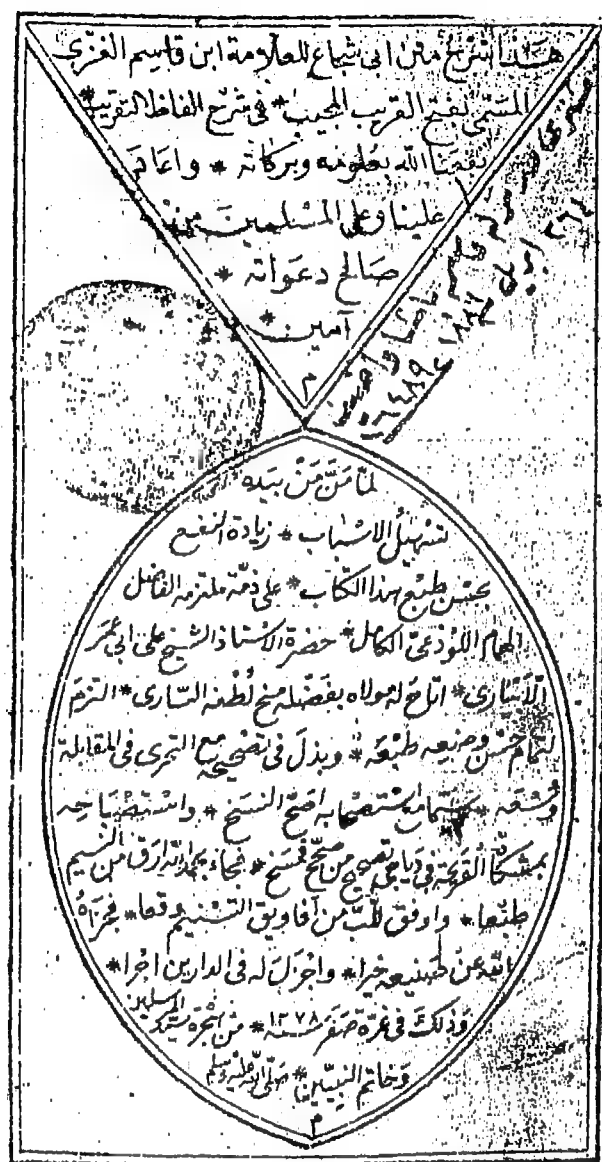 هذا شرح متن ابى شجاع للعلامة ابن قاسم الغزى
المسمى بفتح القريب المجيب * فى شرح الفاظ التقريب *
نفعنا الله بعلومه وبركاته * واعاد
علينا وعلى المسلمين من
صالح دعواته *
آمين *
م
١٨٨٦
لما منّ مَنْ بيده
تسهيل الاسباب * زيادة النفع
بحسن طبع هذا الكتاب * على ذمة ملتزمه الفاضل
الهمام اللوذعىّ الكامل * حضرة الاستاذ الشيخ على ابى عمر
الابيارى * اتاح له مولاه بفضله منح لطفه السارى * التزم
لتمام حسن وضعه طبعه * وبذل فى تصحيحه مع التحرى فى المقابلة
وسعه * اصح النسخ * واستصباحه
القريحة فى دياجى من * فجاء بحمد الله ارق من النسيم
طبعا * واوفق للّبّ من افاويق التسنيم وقعا * فجزاه
الله عن صنيعه خيرا * واجزل له فى الدارين اجرا *
وذلك فى غرة صفر سنة ١٢٧٨ * من هجرة سيد المرسلين
وخاتم النبيين * صلى الله عليه وسلم
م